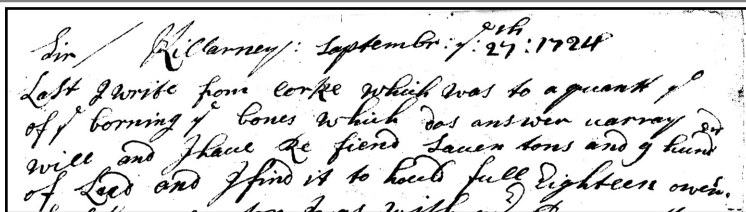 Sir / Killarney: Septembr: ye: 27th: 1724
Last I write from Corke which was to aquant ye
of ye borning ye bones which dos answer uarray
will and I haue Re fiend Sauen tons and 9 hund
of Leed and I find it to hould full Eighteen